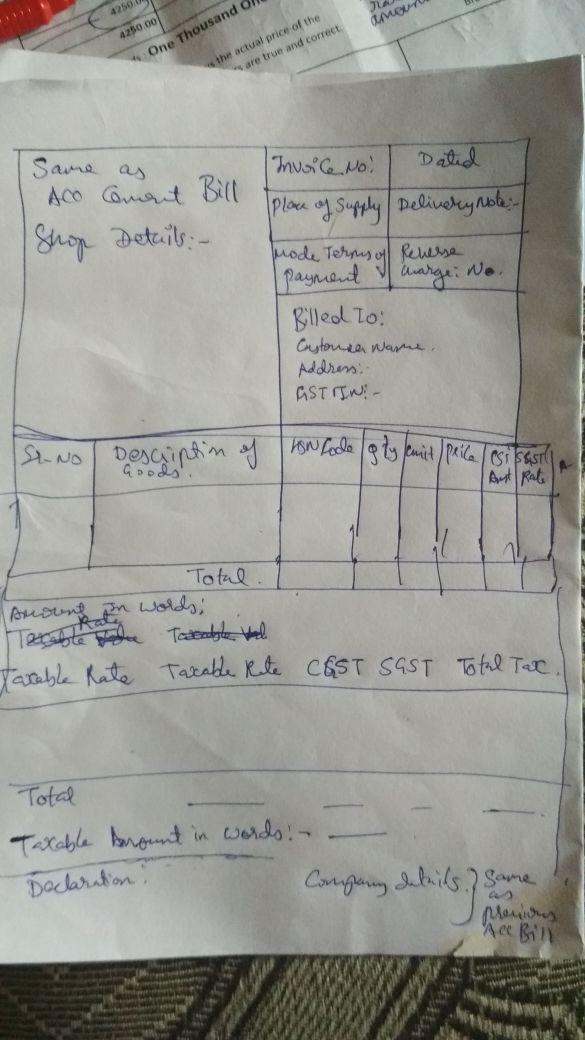 4250.00
4250.00
One Thousand One
the actual price of the
are true and correct.
Same as
ACC Cement Bill
Shop Details:-
Invoice No:
Dated
Place of Supply
Delivery Note:-
Mode Terms of
Payment
Reverse
Charge: No.
Billed To:
Customer Name.
Address:-
GSTIN:-
Sr-No
Description of
Goods.
HSN Code
Qty
Unit
Price
Amt
SGST
Rate
Total.
Amount in words:
Rate
Taxable Rate Taxable Rate CGST SGST Total Tax.
Total
Taxable Amount in words:-
Declaration:
Company details.
Same
as
previous
Acc Bill